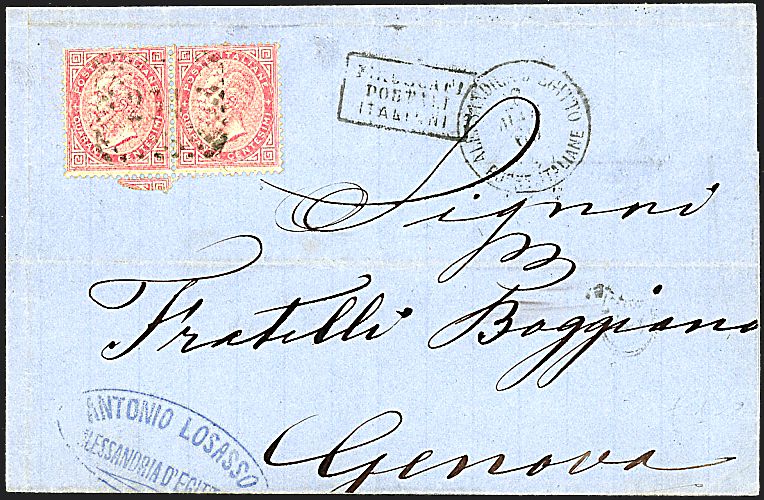 POSTE ITALIANE
CENTESIMI
POSTE ITALIANE
CENTESIMI
PIROSCAFI
POSTALI
ITALIANI
ALESSANDRIA D'EGITTO
POSTE ITALIANE
Signori
Fratelli Boggiano
Genova
ANTONIO LOSASSO
ALESSANDRIA D'EGITT